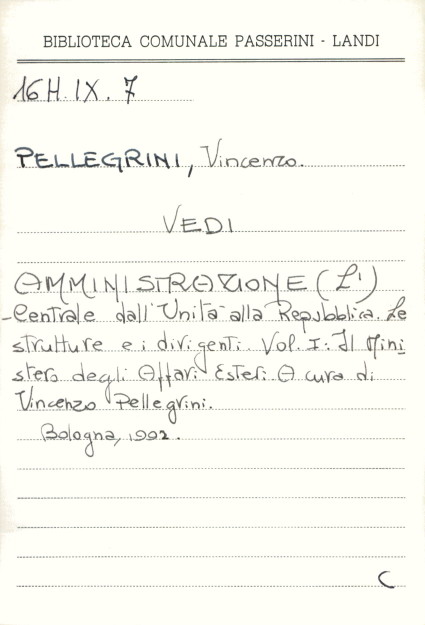 BIBLIOTECA COMUNALE PASSERINI - LANDI
16H.IX. 7
PELLEGRINI, Vincenzo.
VEDI
AMMINISTRAZIONE (L')
Centrale dall'Unità alla Repubblica. Le
strutture e i dirigenti. Vol. I: Il Mini
stero degli Affari Esteri. A cura di
Vincenzo Pellegrini.
Bologna, 1992.
C